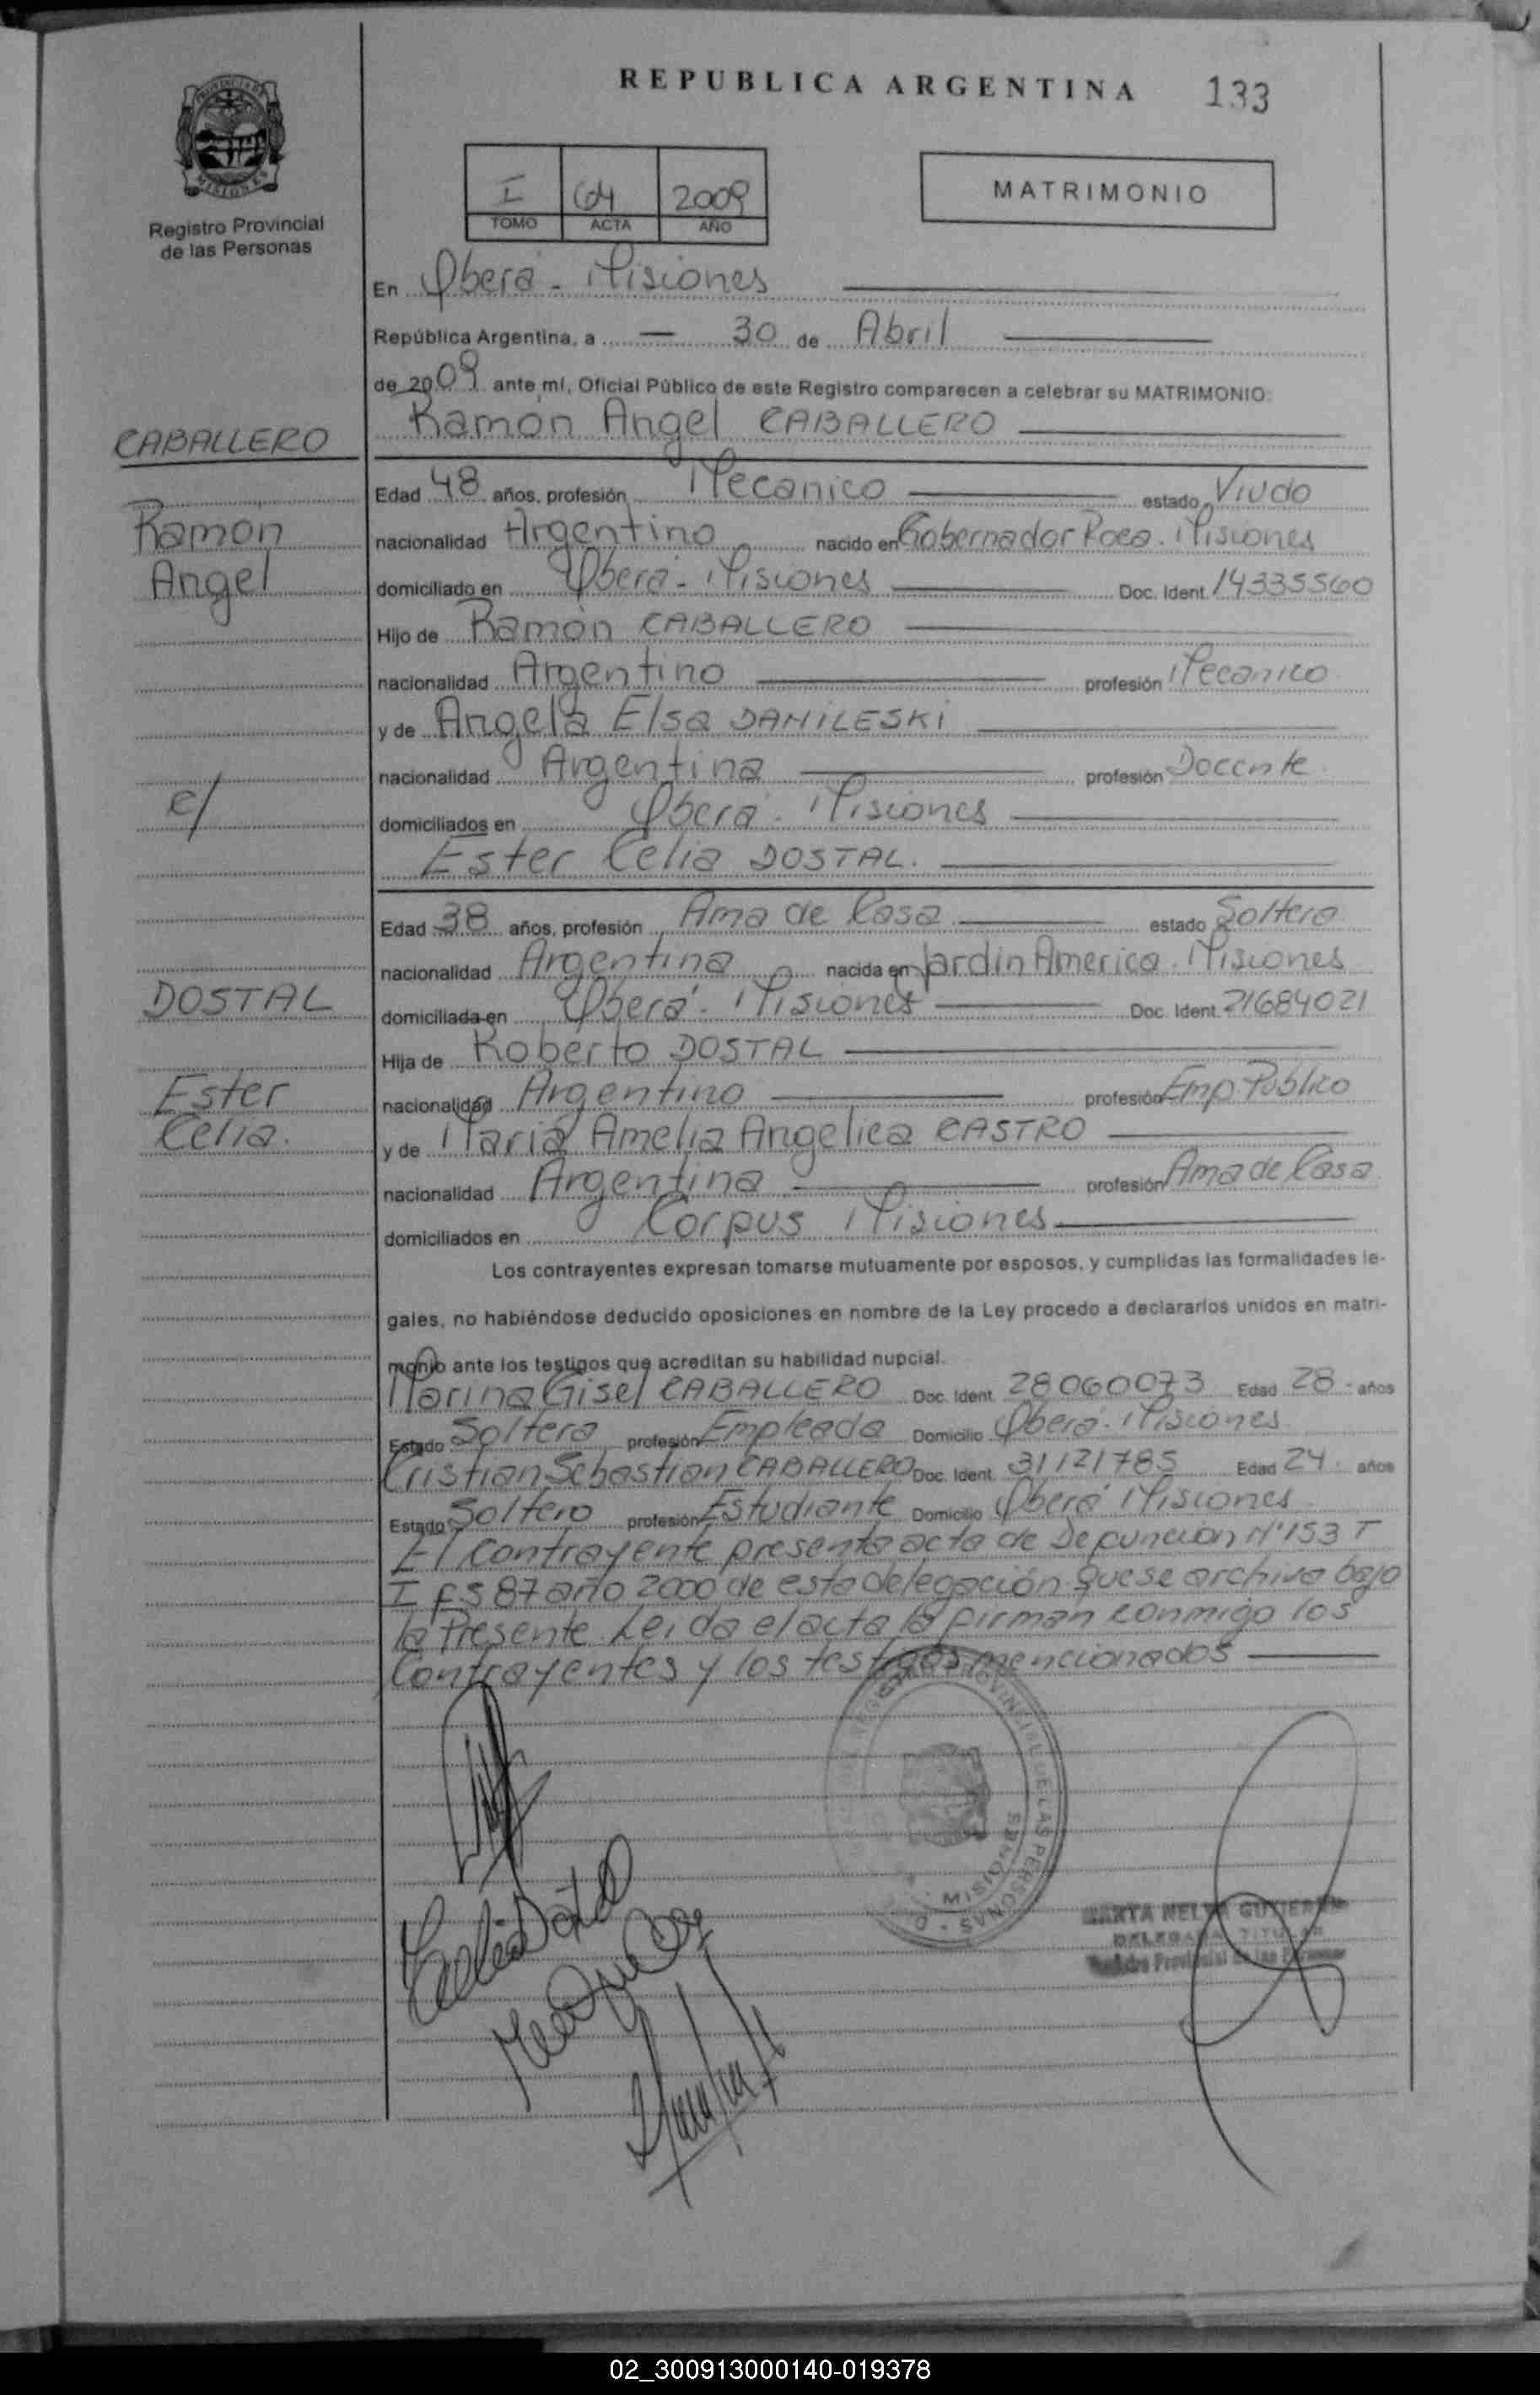 REPUBLICA ARGENTINA 133
PROVINCIA DE
MISIONES
Registro Provincial
de las Personas
I 64 2009
TOMO ACTA AÑO
MATRIMONIO
En Oberá - Misiones
República Argentina, a — 30 de Abril
de 2009 ante mí, Oficial Público de este Registro comparecen a celebrar su MATRIMONIO:
CABALLERO
Ramón Angel CABALLERO
Edad 48 años, profesión Mecanico estado Viudo
Ramón
nacionalidad Argentino nacido en Gobernador Roca. Misiones
Angel
domiciliado en Oberá - Misiones Doc. Ident. 14335560
Hijo de Ramón CABALLERO
nacionalidad Argentino profesión Mecanico
y de Angela Elsa DAMILESKI
nacionalidad Argentina profesión Docente
c/
domiciliados en Oberá - Misiones
Ester Celia DOSTAL.
Edad 38 años, profesión Ama de Casa estado Soltera
nacionalidad Argentina nacida en Jardin America. Misiones
DOSTAL
domiciliada en Oberá - Misiones Doc. Ident. 21684021
Hija de Roberto DOSTAL
Ester
nacionalidad Argentino profesión Emp. Público
Celia.
y de Maria Amelia Angelica CASTRO
nacionalidad Argentina profesión Ama de Casa
domiciliados en Corpus Misiones
Los contrayentes expresan tomarse mutuamente por esposos, y cumplidas las formalidades le-
gales, no habiéndose deducido oposiciones en nombre de la Ley procedo a declararlos unidos en matri-
monio ante los testigos que acreditan su habilidad nupcial.
Marina Gisel CABALLERO Doc. Ident. 28060073 Edad 28 - años
Estado Soltera profesión Empleada Domicilio Oberá - Misiones
Cristian Sebastian CABALLERO Doc. Ident. 31121785 Edad 24. años
Estado Soltero profesión Estudiante Domicilio Oberá Misiones
El contrayente presenta acta de Defuncion Nº 153 T
I Fs 87 año 2000 de esta delegación que se archiva bajo
la Presente. Leida el acta la firman conmigo los
Contrayentes y los testigos mencionados
PROVINCIAL DE LAS PERSONAS
MISIONES
Celia Dostal
MARTA NELVA GUTIERREZ
DELEGADA TITULAR
Registro Provincial de las Personas
02_300913000140-019378